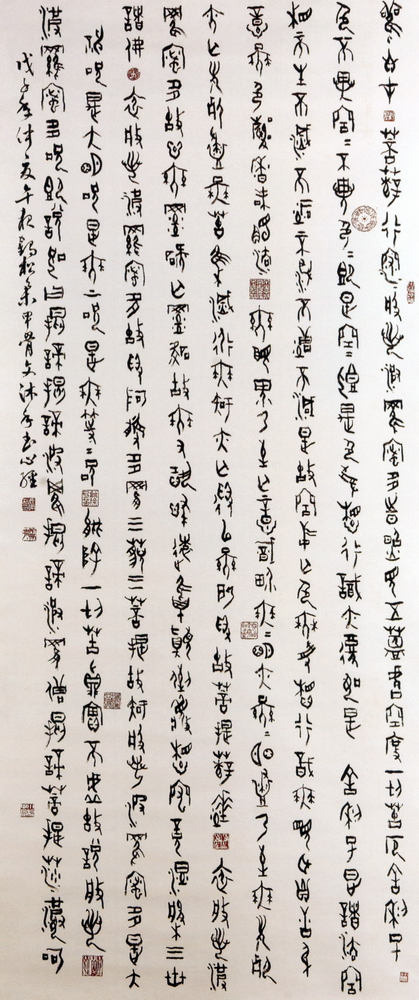 觀自在菩薩行深般若波羅蜜多時照見五蘊皆空度一切苦厄舍利子
色不異空空不異色色即是空空即是色受想行識亦復如是舍利子是諸法空
相不生不滅不垢不淨不增不減是故空中無色無受想行識無眼耳鼻舌身
意無色聲香味觸法無眼界乃至無意識界無無明亦無無明盡乃至無老死
亦無老死盡無苦集滅道無智亦無得以無所得故菩提薩埵依般若波
羅蜜多故心無罣礙無罣礙故無有恐怖遠離顛倒夢想究竟涅槃三世
諸佛依般若波羅蜜多故得阿耨多羅三藐三菩提故知般若波羅蜜多是大
神咒是大明咒是無上咒是無等等咒能除一切苦真實不虛故說般若
波羅蜜多咒即說咒曰揭諦揭諦波羅揭諦波羅僧揭諦菩提薩婆訶
戊子年仲夏午夜集甲骨文沐手書心經